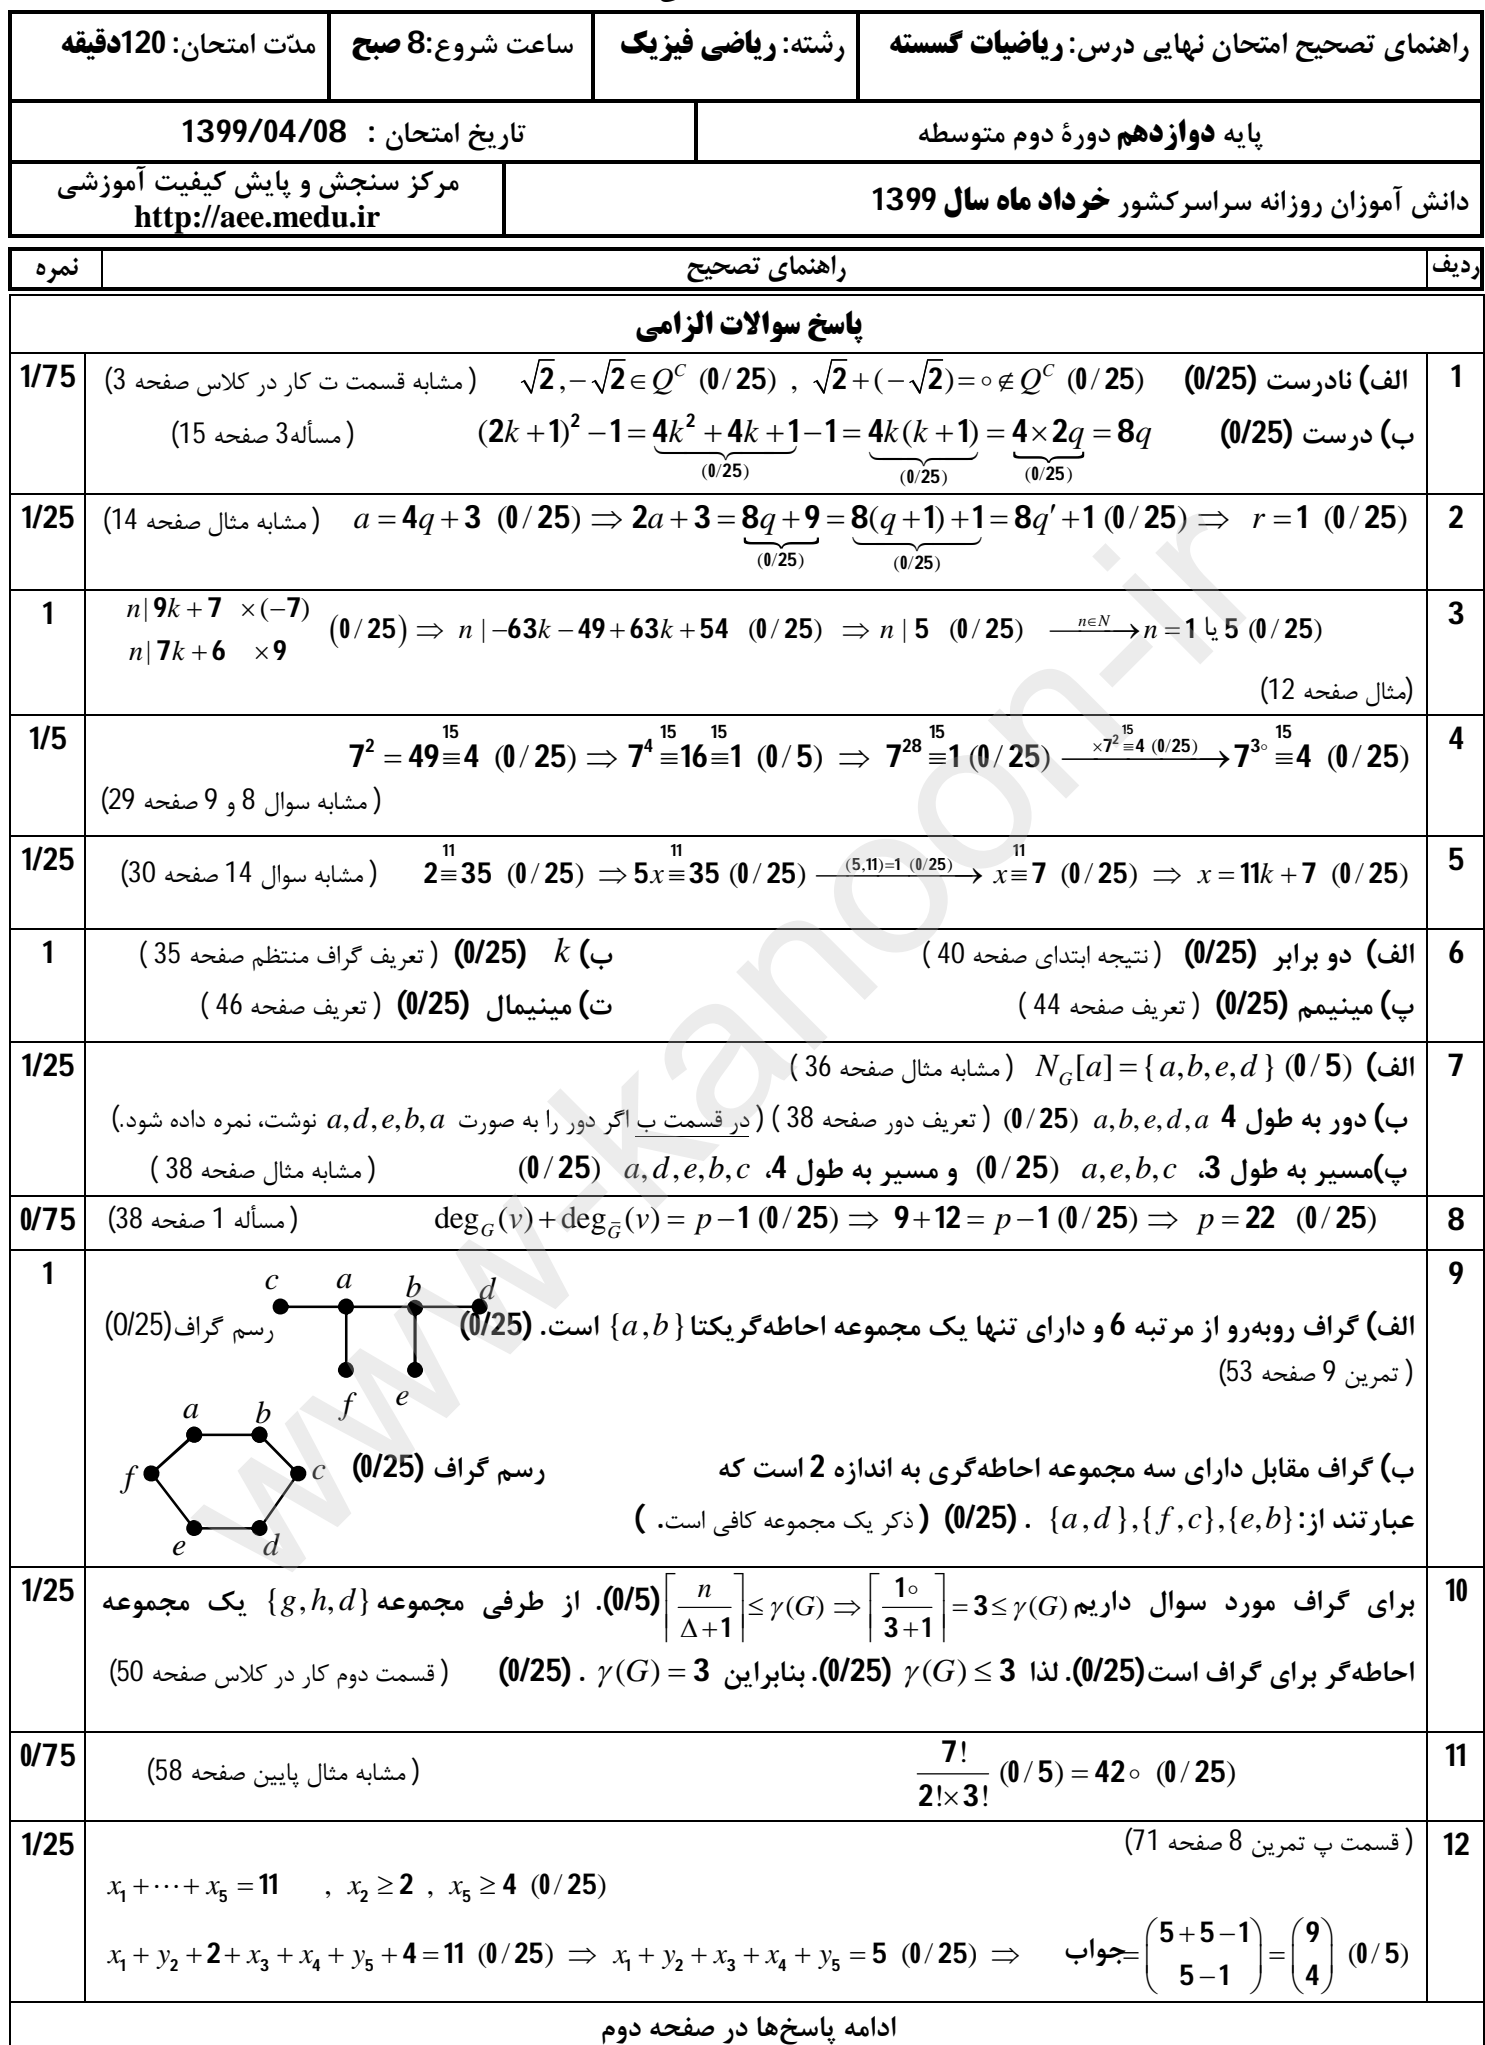 راهنمای تصحیح امتحان نهایی درس: ریاضیات گسسته	رشته: ریاضی فیزیک	ساعت شروع:8 صبح	مدّت امتحان: 120دقیقه
پایه دوازدهم دورهٔ دوم متوسطه	تاریخ امتحان : 1399/04/08
دانش آموزان روزانه سراسرکشور خرداد ماه سال 1399	مرکز سنجش و پایش کیفیت آموزشی
http://aee.medu.ir
ردیف	راهنمای تصحیح	نمره
پاسخ سوالات الزامی
1	الف) نادرست (0/25) √2 , −√2 ∈ Q^C (0/25) , √2 + (−√2) = ∘ ∉ Q^C (0/25) ( مشابه قسمت ت کار در کلاس صفحه 3)	1/75
ب) درست (0/25) (2k + 1)² − 1 = 4k² + 4k + 1 − 1 = 4k(k + 1) = 4 × 2q = 8q ( مسأله3 صفحه 15)
(0/25) (0/25) (0/25)
2	a = 4q + 3 (0/25) ⇒ 2a + 3 = 8q + 9 = 8(q + 1) + 1 = 8q′ + 1 (0/25) ⇒ r = 1 (0/25) ( مشابه مثال صفحه 14)	1/25
(0/25) (0/25)
3	n | 9k + 7 ×(−7)	1
n | 7k + 6 ×9 (0/25) ⇒ n | −63k − 49 + 63k + 54 (0/25) ⇒ n | 5 (0/25) —n∈N→ n = 1 یا 5 (0/25)
(مثال صفحه 12)
4	7² = 49 ≡¹⁵ 4 (0/25) ⇒ 7⁴ ≡¹⁵ 16 ≡¹⁵ 1 (0/5) ⇒ 7²⁸ ≡¹⁵ 1 (0/25) —×7² ≡¹⁵ 4 (0/25)→ 7³∘ ≡¹⁵ 4 (0/25)	1/5
( مشابه سوال 8 و 9 صفحه 29)
5	2 ≡¹¹ 35 (0/25) ⇒ 5x ≡¹¹ 35 (0/25) —(5,11)=1 (0/25)→ x ≡¹¹ 7 (0/25) ⇒ x = 11k + 7 (0/25) ( مشابه سوال 14 صفحه 30)	1/25
6	الف) دو برابر (0/25) ( نتیجه ابتدای صفحه 40 ) ب) k (0/25) ( تعریف گراف منتظم صفحه 35 )	1
پ) مینیمم (0/25) ( تعریف صفحه 44 ) ت) مینیمال (0/25) ( تعریف صفحه 46 )
7	الف) N_G[a] = { a,b,e,d } (0/5) ( مشابه مثال صفحه 36 )	1/25
ب) دور به طول 4 a,b,e,d,a (0/25) ( تعریف دور صفحه 38 ) ( در قسمت ب اگر دور را به صورت a,d,e,b,a نوشت، نمره داده شود.)
پ)مسیر به طول 3، a,e,b,c (0/25) و مسیر به طول 4، a,d,e,b,c (0/25) ( مشابه مثال صفحه 38 )
8	deg_G(v) + deg_Ḡ(v) = p − 1 (0/25) ⇒ 9 + 12 = p − 1 (0/25) ⇒ p = 22 (0/25) ( مسأله 1 صفحه 38)	0/75
9	1
c a b d
الف) گراف روبه‌رو از مرتبه 6 و دارای تنها یک مجموعه احاطه‌گریکتا {a,b} است. (0/25) رسم گراف(0/25)
( تمرین 9 صفحه 53)
f e
a b
ب) گراف مقابل دارای سه مجموعه احاطه‌گری به اندازه 2 است که رسم گراف (0/25) c f
عبارتند از: {a,d},{f,c},{e,b} . (0/25) ( ذکر یک مجموعه کافی است. )
e d
10	برای گراف مورد سوال داریم ⌈n/(Δ+1)⌉ ≤ γ(G) ⇒ ⌈1∘/(3+1)⌉ = 3 ≤ γ(G) (0/5). از طرفی مجموعه {g,h,d} یک مجموعه	1/25
احاطه‌گر برای گراف است(0/25). لذا γ(G) ≤ 3 (0/25). بنابراین γ(G) = 3 . (0/25) ( قسمت دوم کار در کلاس صفحه 50)
11	7!/(2!×3!) (0/5) = 42∘ (0/25) ( مشابه مثال پایین صفحه 58)	0/75
12	( قسمت پ تمرین 8 صفحه 71)	1/25
x₁ + ⋯ + x₅ = 11 , x₂ ≥ 2 , x₅ ≥ 4 (0/25)
x₁ + y₂ + 2 + x₃ + x₄ + y₅ + 4 = 11 (0/25) ⇒ x₁ + y₂ + x₃ + x₄ + y₅ = 5 (0/25) ⇒ جواب = (5+5−1 / 5−1) = (9 / 4) (0/5)
ادامه پاسخ‌ها در صفحه دوم
www-kanoon-ir